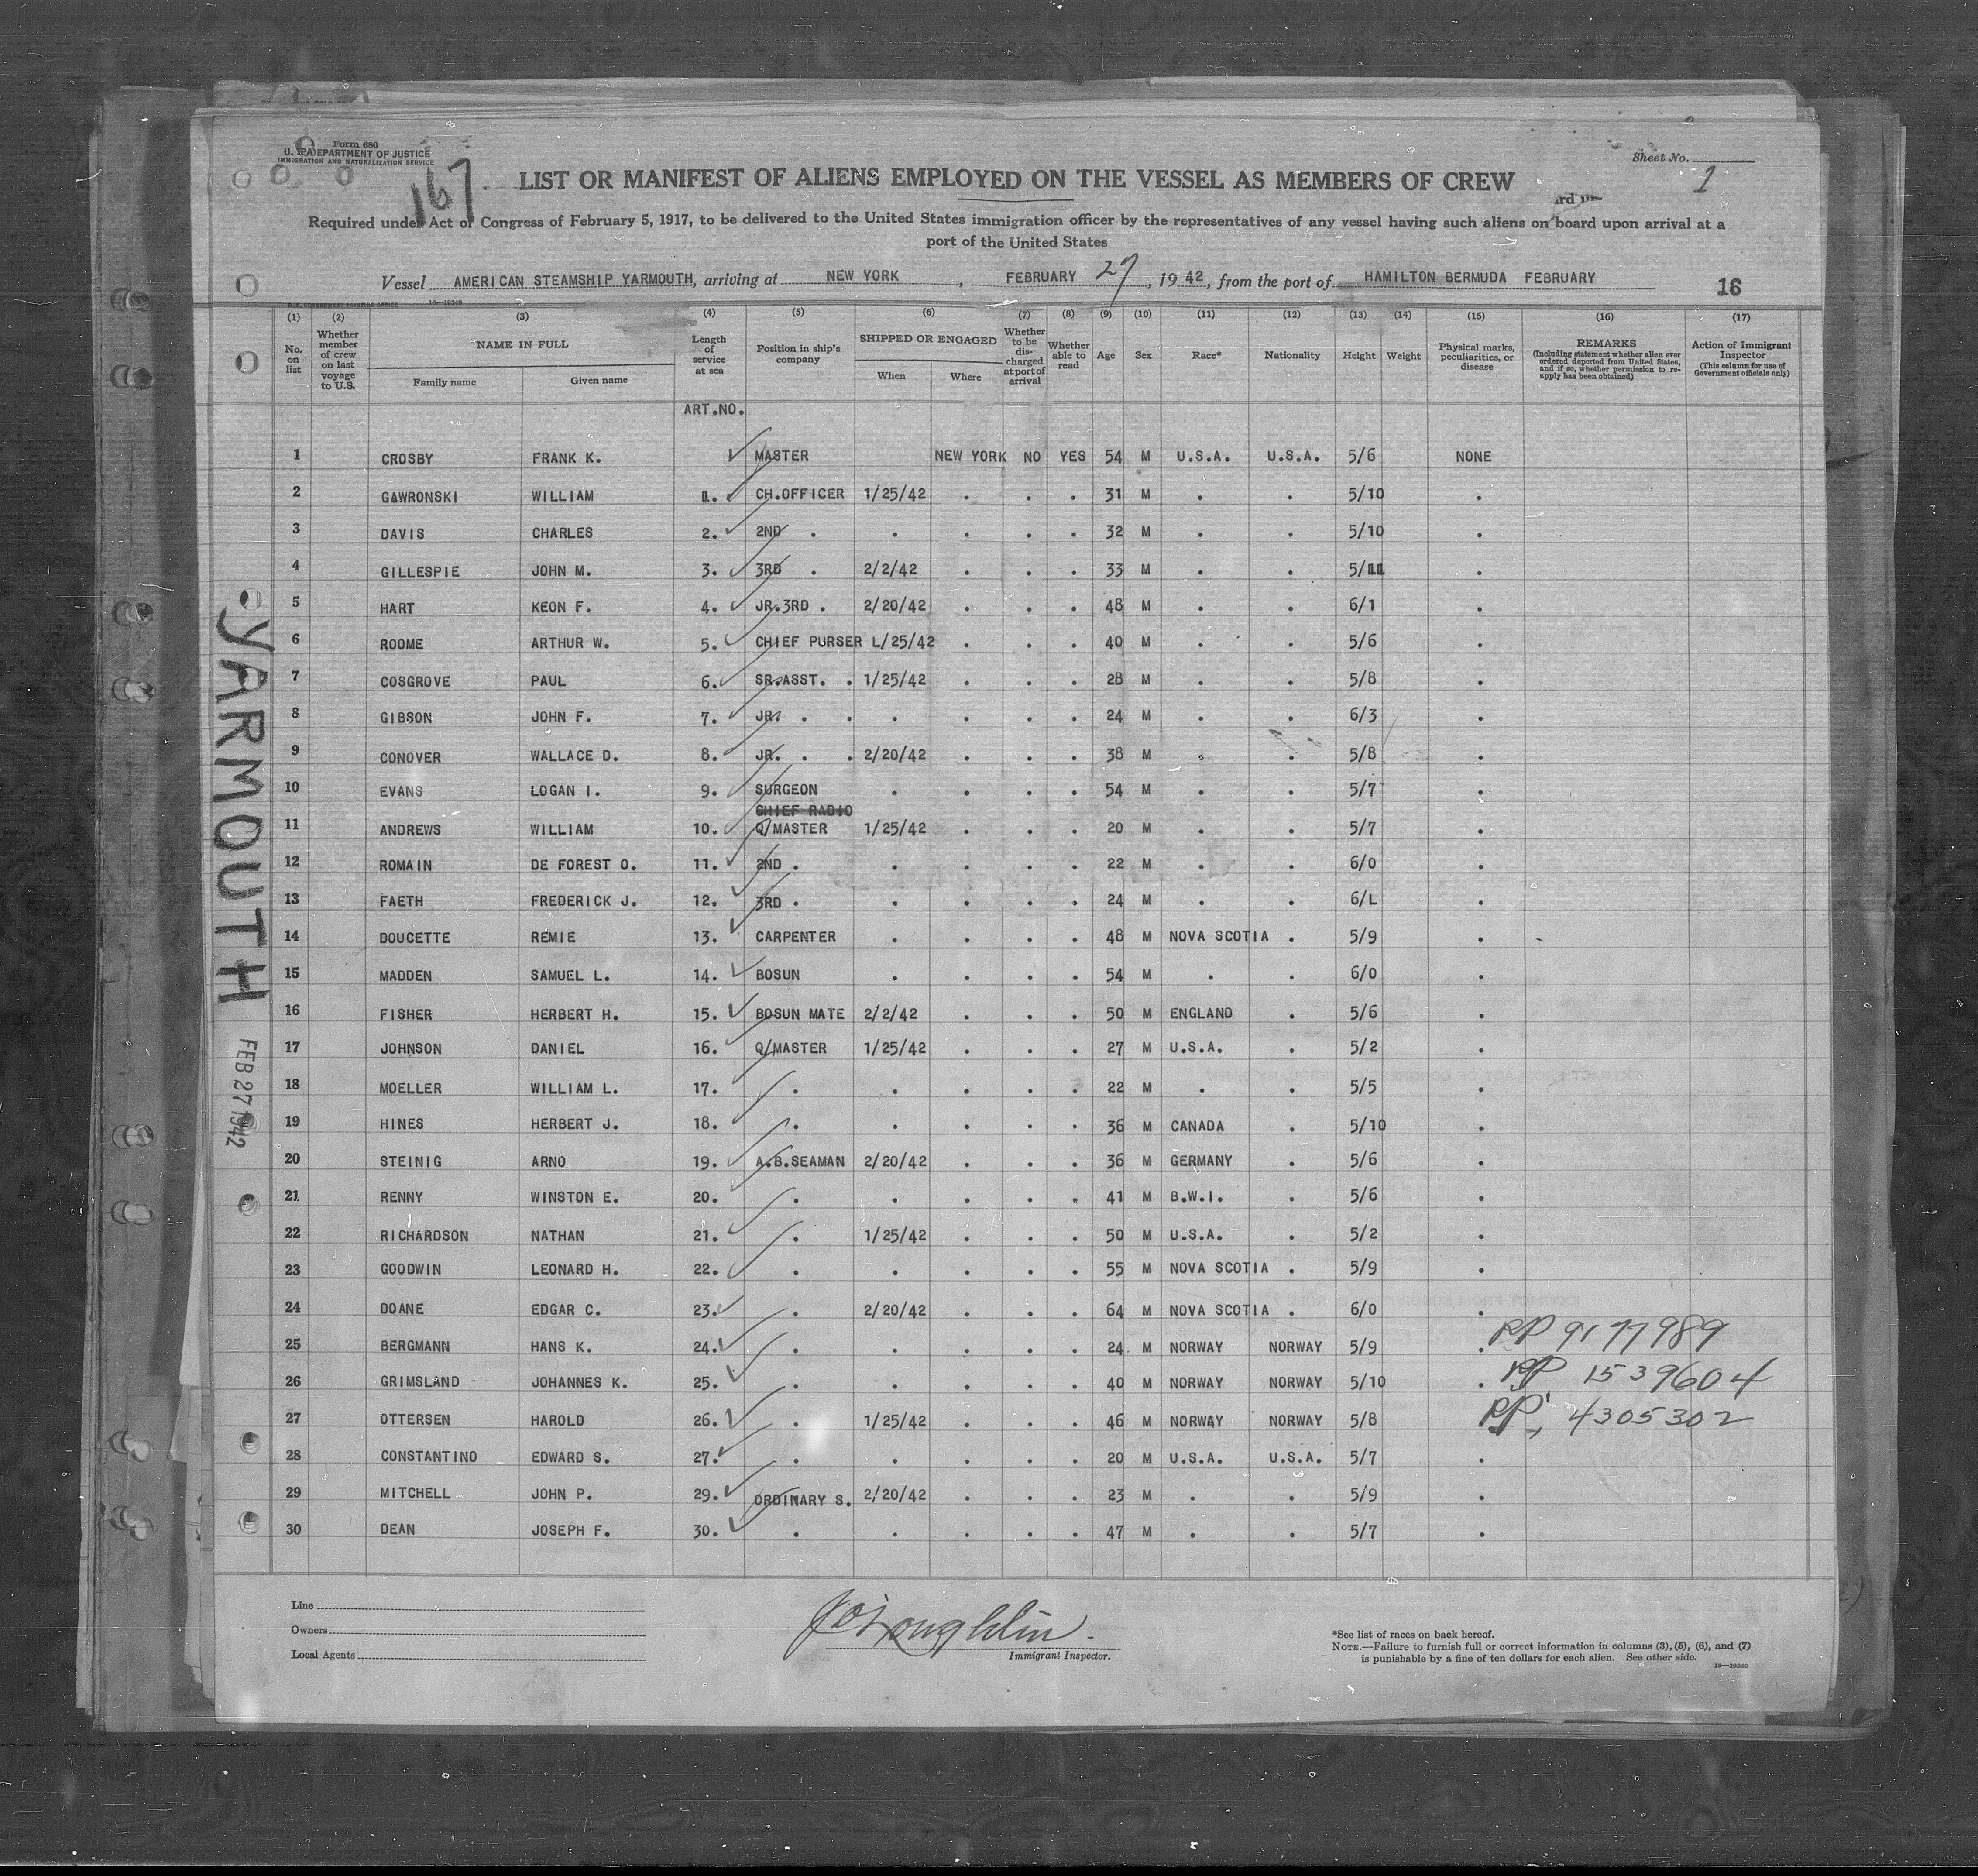 Form 680
U. S. DEPARTMENT OF JUSTICE
IMMIGRATION AND NATURALIZATION SERVICE
167
Sheet No.
1
LIST OR MANIFEST OF ALIENS EMPLOYED ON THE VESSEL AS MEMBERS OF CREW
Required under Act of Congress of February 5, 1917, to be delivered to the United States immigration officer by the representatives of any vessel having such aliens on board upon arrival at a
port of the United States
Vessel AMERICAN STEAMSHIP YARMOUTH, arriving at NEW YORK, FEBRUARY 27, 1942, from the port of HAMILTON BERMUDA FEBRUARY 16
(1) (2) (3) (4) (5) (6) (7) (8) (9) (10) (11) (12) (13) (14) (15) (16) (17)
No. on list
Whether member of crew on last voyage to U.S.
NAME IN FULL
Family name Given name
Length of service at sea
Position in ship's company
SHIPPED OR ENGAGED
When Where
Whether to be discharged at port of arrival
Whether able to read
Age Sex Race* Nationality Height Weight
Physical marks, peculiarities, or disease
REMARKS
(Including statement whether alien ever ordered deported from United States, and if so, whether permission to re-apply has been obtained)
Action of Immigrant Inspector
(This column for use of Government officials only)
ART.NO.
1 CROSBY FRANK K. MASTER NEW YORK NO YES 54 M U.S.A. U.S.A. 5/6 NONE
2 GAWRONSKI WILLIAM 1. CH.OFFICER 1/25/42 . . . 31 M . . 5/10 .
3 DAVIS CHARLES 2. 2ND . . . . . 32 M . . 5/10 .
4 GILLESPIE JOHN M. 3. 3RD . 2/2/42 . . . 33 M . . 5/11 .
5 HART KEON F. 4. JR.3RD . 2/20/42 . . . 48 M . . 6/1 .
6 ROOME ARTHUR W. 5. CHIEF PURSER L/25/42 . . . 40 M . . 5/6 .
7 COSGROVE PAUL 6. SR.ASST. . 1/25/42 . . . 28 M . . 5/8 .
8 GIBSON JOHN F. 7. JR. . . . . . . 24 M . . 6/3 .
9 CONOVER WALLACE D. 8. JR. . . 2/20/42 . . . 38 M . . 5/8 .
10 EVANS LOGAN I. 9. SURGEON . . . . 54 M . . 5/7 .
CHIEF RADIO
11 ANDREWS WILLIAM 10. Q/MASTER 1/25/42 . . . 20 M . . 5/7 .
12 ROMAIN DE FOREST O. 11. 2ND . . . . . 22 M . . 6/0 .
13 FAETH FREDERICK J. 12. 3RD . . . . . 24 M . . 6/L .
14 DOUCETTE REMIE 13. CARPENTER . . . . 48 M NOVA SCOTIA . 5/9 .
15 MADDEN SAMUEL L. 14. BOSUN . . . . 54 M . . 6/0 .
16 FISHER HERBERT H. 15. BOSUN MATE 2/2/42 . . . 50 M ENGLAND . 5/6 .
17 JOHNSON DANIEL 16. Q/MASTER 1/25/42 . . . 27 M U.S.A. . 5/2 .
18 MOELLER WILLIAM L. 17. . . . . . 22 M . . 5/5 .
19 HINES HERBERT J. 18. . . . . . 36 M CANADA . 5/10 .
20 STEINIG ARNO 19. A.B.SEAMAN 2/20/42 . . . 36 M GERMANY . 5/6 .
21 RENNY WINSTON E. 20. . . . . . 41 M B.W.I. . 5/6 .
22 RICHARDSON NATHAN 21. . 1/25/42 . . . 50 M U.S.A. . 5/2 .
23 GOODWIN LEONARD H. 22. . . . . . 55 M NOVA SCOTIA . 5/9 .
24 DOANE EDGAR C. 23. . 2/20/42 . . . 64 M NOVA SCOTIA . 6/0 .
25 BERGMANN HANS K. 24. . . . . . 24 M NORWAY NORWAY 5/9 . PP 9177989
26 GRIMSLAND JOHANNES K. 25. . . . . . 40 M NORWAY NORWAY 5/10 . PP 1539604
27 OTTERSEN HAROLD 26. . 1/25/42 . . . 46 M NORWAY NORWAY 5/8 PP 4305302
28 CONSTANTINO EDWARD S. 27. . . . . . 20 M U.S.A. U.S.A. 5/7 .
29 MITCHELL JOHN P. 29. ORDINARY S. 2/20/42 . . . 23 M . . 5/9 .
30 DEAN JOSEPH F. 30. . . . . . 47 M . . 5/7 .
YARMOUTH
FEB 27 1942
Line
Owners
Local Agents
J O'Loughlin.
Immigrant Inspector.
*See list of races on back hereof.
NOTE.—Failure to furnish full or correct information in columns (3), (5), (6), and (7)
is punishable by a fine of ten dollars for each alien. See other side.
16—19349